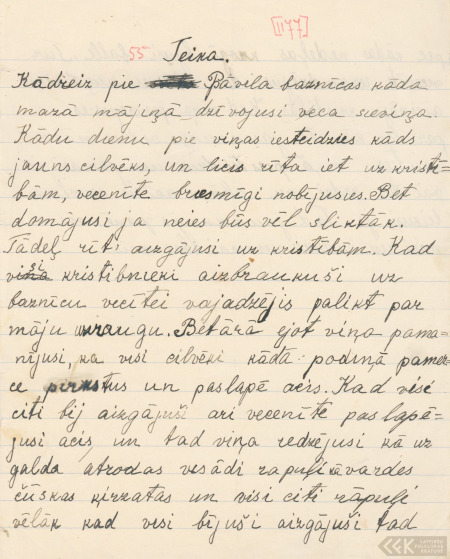 [1177]
55 Teika.
Kādreiz pie Pāvila baznīcas kāda
mazā mājiņā dzīvojusi veca sieviņa.
Kādu dienu pie viņas iesteidzies kāds
jauns cilvēks, un licis rīta iet uz kristī=
bām, vecenīte briesmīgi nobijusies. Bet
domājusi ja neies būs vēl sliktāk.
Tādeļ rīt' aizgājusi uz kristībām. Kad
šie kristibnieki aizbraukuši uz
baznīcu vecītei vajadzējis palikt par
māju uzraugu. Betārā ejot viņa pama-
nījusi, ka visi cilvēki kādā podiņā pamer-
ce pirkstus un paslapē acis. Kad visi
citi bij aizgājuši ari vecenīte paslapē-
jusi acis, un tad viņa redzējusi kā uz
galda atrodas vesādi rapuļi kāvardes
čūskas ķirzatas un visi citi rāpuļi
vēlāk kad visi bijuši aizgājuši tad
LATVIEŠU FOLKLORAS KRĀTUVE